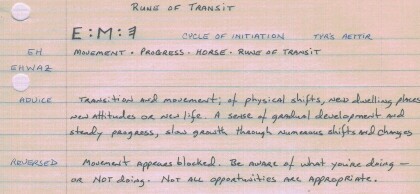 RUNE OF TRANSIT
E : M : Ǝ CYCLE OF INITIATION TYR'S AETTIR
EH MOVEMENT · PROGRESS · HORSE · RUNE OF TRANSIT
EHWAZ
ADVICE TRANSITION AND MOVEMENT; OF PHYSICAL SHIFTS, NEW DWELLING PLACES
NEW ATTITUDES OR NEW LIFE. A SENSE OF GRADUAL DEVELOPMENT AND
STEADY PROGRESS, SLOW GROWTH THROUGH NUMEROUS SHIFTS AND CHANGES
REVERSED MOVEMENT APPEARS BLOCKED. BE AWARE OF WHAT YOU'RE DOING —
OR NOT DOING. NOT ALL OPPORTUNITIES ARE APPROPRIATE.